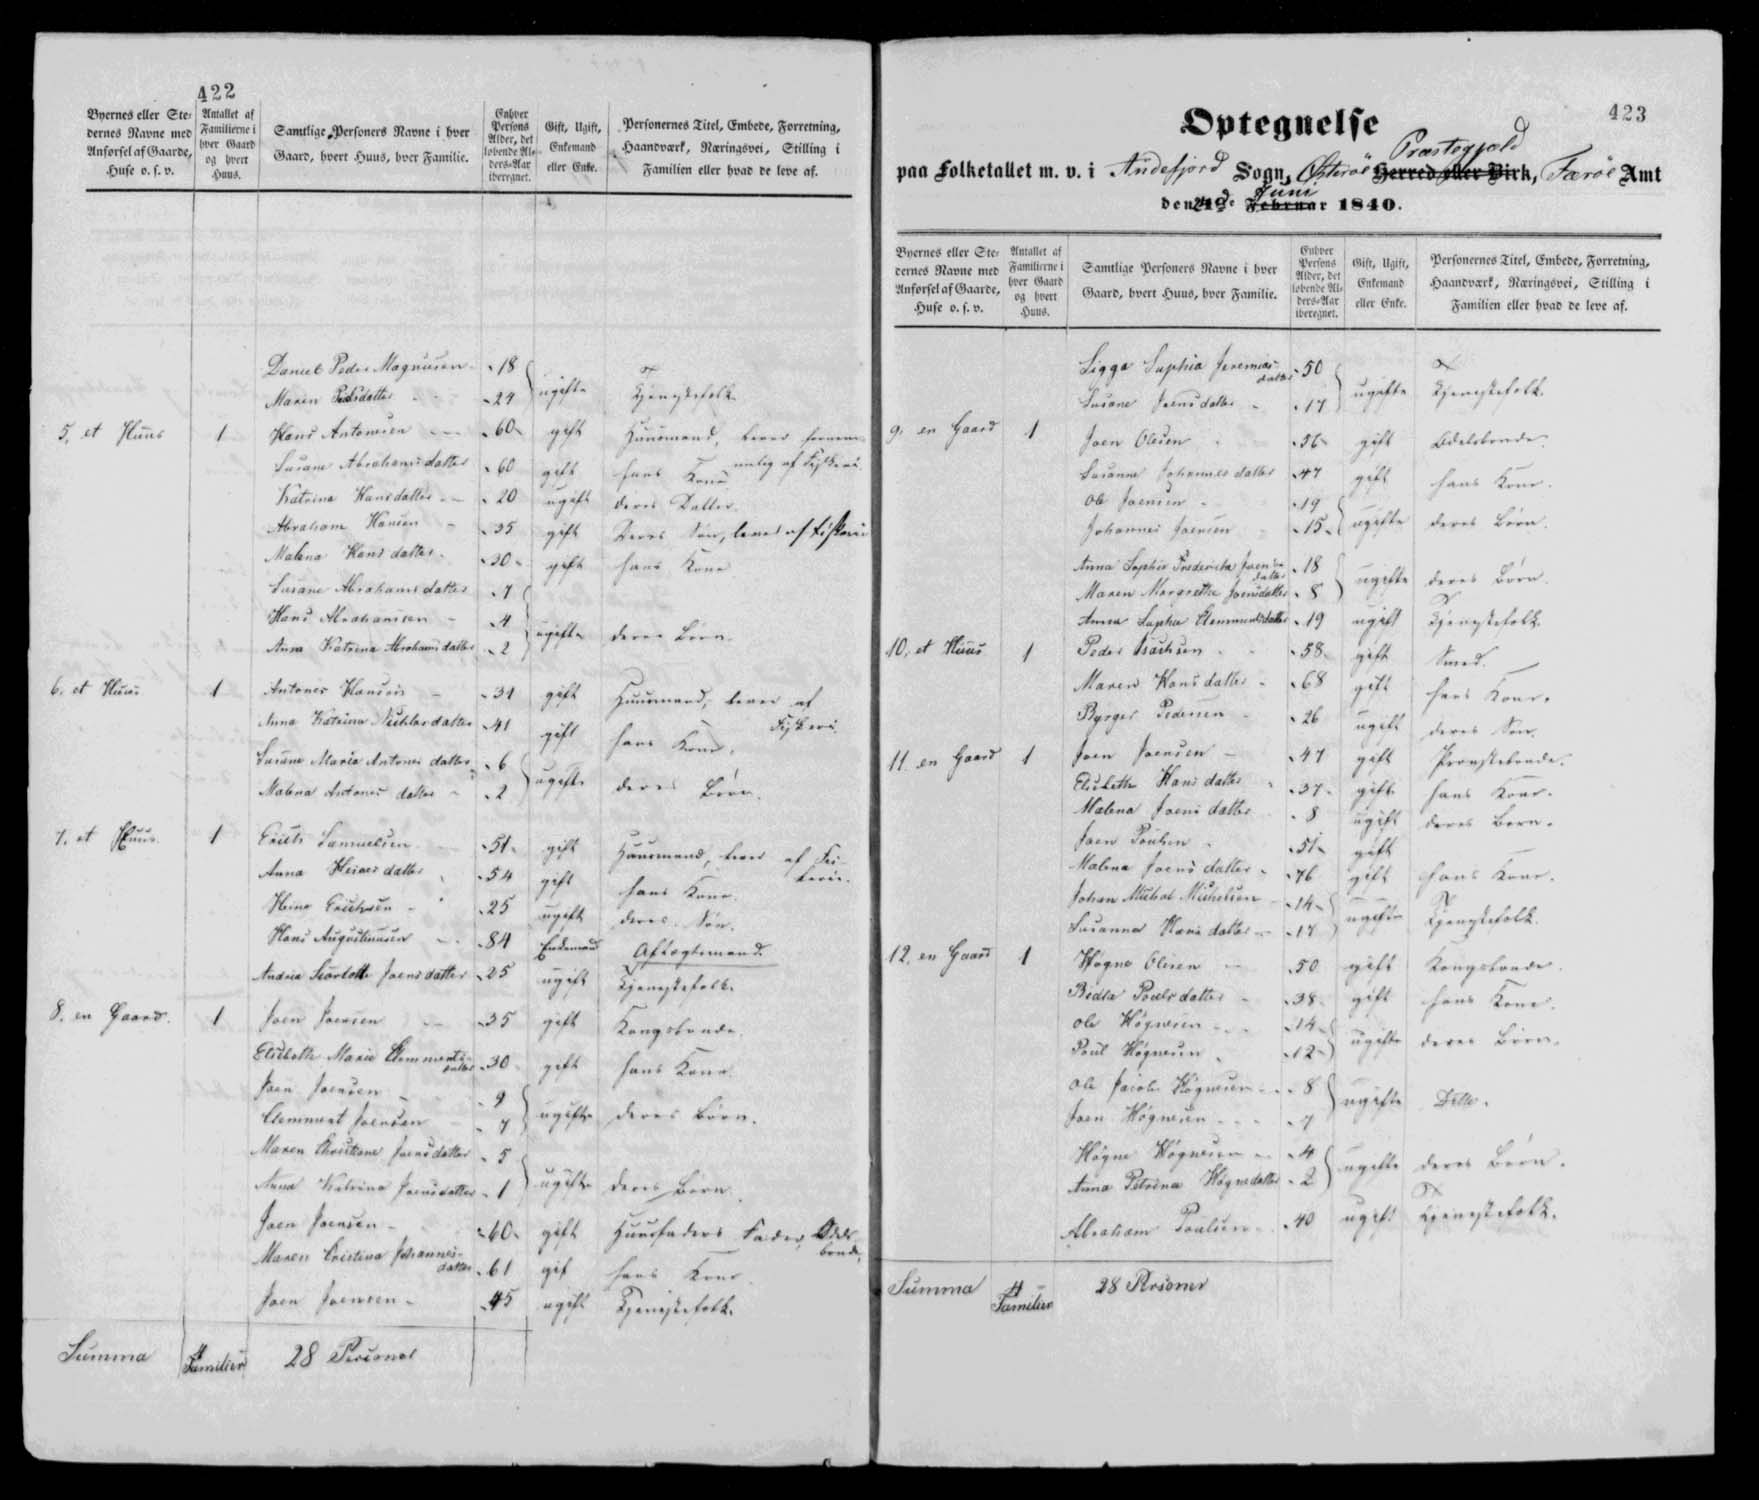 422
Byernes eller Ste-
dernes Navne med
Anførsel af Gaarde,
Huse o. s. v.
Antallet af
Familierne i
hver Gaard
og hvert
Huus.
Samtlige Personers Navne i hver
Gaard, hvert Huus, hver Familie.
Enhver
Persons
Alder, det
løbende Al-
ders-Aar
iberegnet.
Gift, Ugift,
Enkemand
eller Enke.
Personernes Titel, Embede, Forretning,
Haandværk, Næringsvei, Stilling i
Familien eller hvad de leve af.
Daniel Peder Magnusen 18
Maren Pedersdatter 24 ugifte Tjenestefolk.
5, et Huus 1 Hans Antonsen 60 gift Huusmand, lever fornem-
melig af Fiskeri.
Susane Abrahamsdatter 60 gift hans Kone
Katrina Hansdatter 20 ugift deres Datter.
Abraham Hansen 35 gift Deres Søn, lever af Fiskerie
Malena Hansdatter 30 gift hans Kone
Susane Abrahamsdatter 7
Hans Abrahamsen 4
Anna Katrina Abrahamsdatter 2 ugifte deres Børn.
6, et Huus 1 Antonis Hansen 31 gift Huusmand, lever af
Fiskeri.
Anna Katrina Nichlasdatter 41 gift hans Kone.
Susane Maria Antonis datter 6
Malena Antonis datter 2 ugifte deres Børn.
7, et Huus 1 Erich Samuelsen 51 gift Huusmand, lever af Fis-
kerie.
Anna Heinesdatter 54 gift hans Kone.
Heine Erichsen 25 ugift deres Søn.
Hans Augustinusen 84 Enkemand Aftægtsmand.
Andrea Scarlotte Joensdatter 25 ugift Tjenestefolk.
8, en Gaard. 1 Joen Joensen 35 gift Kongsbonde.
Elisbeth Marie Clements-
datter 30 gift hans Kone.
Joen Joensen 9
Clemment Joensen 7 ugifte deres Børn.
Maren Christiane Joensdatter 5
Anna Katrina Joensdatter 1 ugifte deres Børn.
Joen Joensen 60 gift Huusfaders Fader, Odels-
bonde,
Maren Cristina Johannes-
datter 61 gif hans Kone.
Joen Joensen 45 ugift Tjenestefolk.
Summa 4 Familier 28 Personer
423
Optegnelse
paa Folketallet m. v. i Andefjord Sogn, Østerøe Herred eller Birk, Færøe Amt
Præstegjæld
den 24de Februar 1840.
Juni
Byernes eller Ste-
dernes Navne med
Anførsel af Gaarde,
Huse o. s. v.
Antallet af
Familierne i
hver Gaard
og hvert
Huus.
Samtlige Personers Navne i hver
Gaard, hvert Huus, hver Familie.
Enhver
Persons
Alder, det
løbende Al-
ders-Aar
iberegnet.
Gift, Ugift,
Enkemand
eller Enke.
Personernes Titel, Embede, Forretning,
Haandværk, Næringsvei, Stilling i
Familien eller hvad de leve af.
Sigga Sophia Jeremias-
datter 50
Susane Joensdatter 17 ugifte Tjenestefolk.
9, en Gaard 1 Joen Olesen 56 gift Odelsbonde.
Susanne Johannesdatter 47 gift hans Kone.
Ole Joensen 19
Johannes Joensen 15 ugifte deres Børn.
Anna Sophie Frederícha Joens-
datter 18
Maren Margrethe Joensdatter 8 ugifte deres Børn.
Anna Sophia Clemmentsdatter 19 ugift Tjenestefolk.
10, et Huus 1 Peder Isachsen 58 gift Smed.
Maren Hansdatter 68 gift hans Kone.
Byrger Pedersen 26 ugift deres Søn.
11 en Gaard 1 Joen Joensen 47 gift Præstebonde.
Elisbeth Hansdatter 37 gift hans Kone.
Malena Joensdatter 8 ugift deres Børn.
Joen Poulsen 51 gift
Malena Joensdatter 76 gift hans Kone.
Johan Michal Michelsen 14
Susanna Hansdatter 17 ugifte Tjenestefolk.
12, en Gaard 1 Høgne Olesen 50 gift Kongsbonde.
Bedla Poulsdatter 38 gift hans Kone.
Ole Høgnesen 14
Poul Høgnesen 12 ugifte deres Børn.
Ole Jacob Høgnesen 8
Joen Høgnesen 7 ugifte Ditto.
Høgne Høgnesen 4
Anna Petrina Høgnedatter 2 ugifte deres Børn.
Abraham Poulsen 40 ugift Tjenestefolk.
Summa 4 Familier 28 Personer